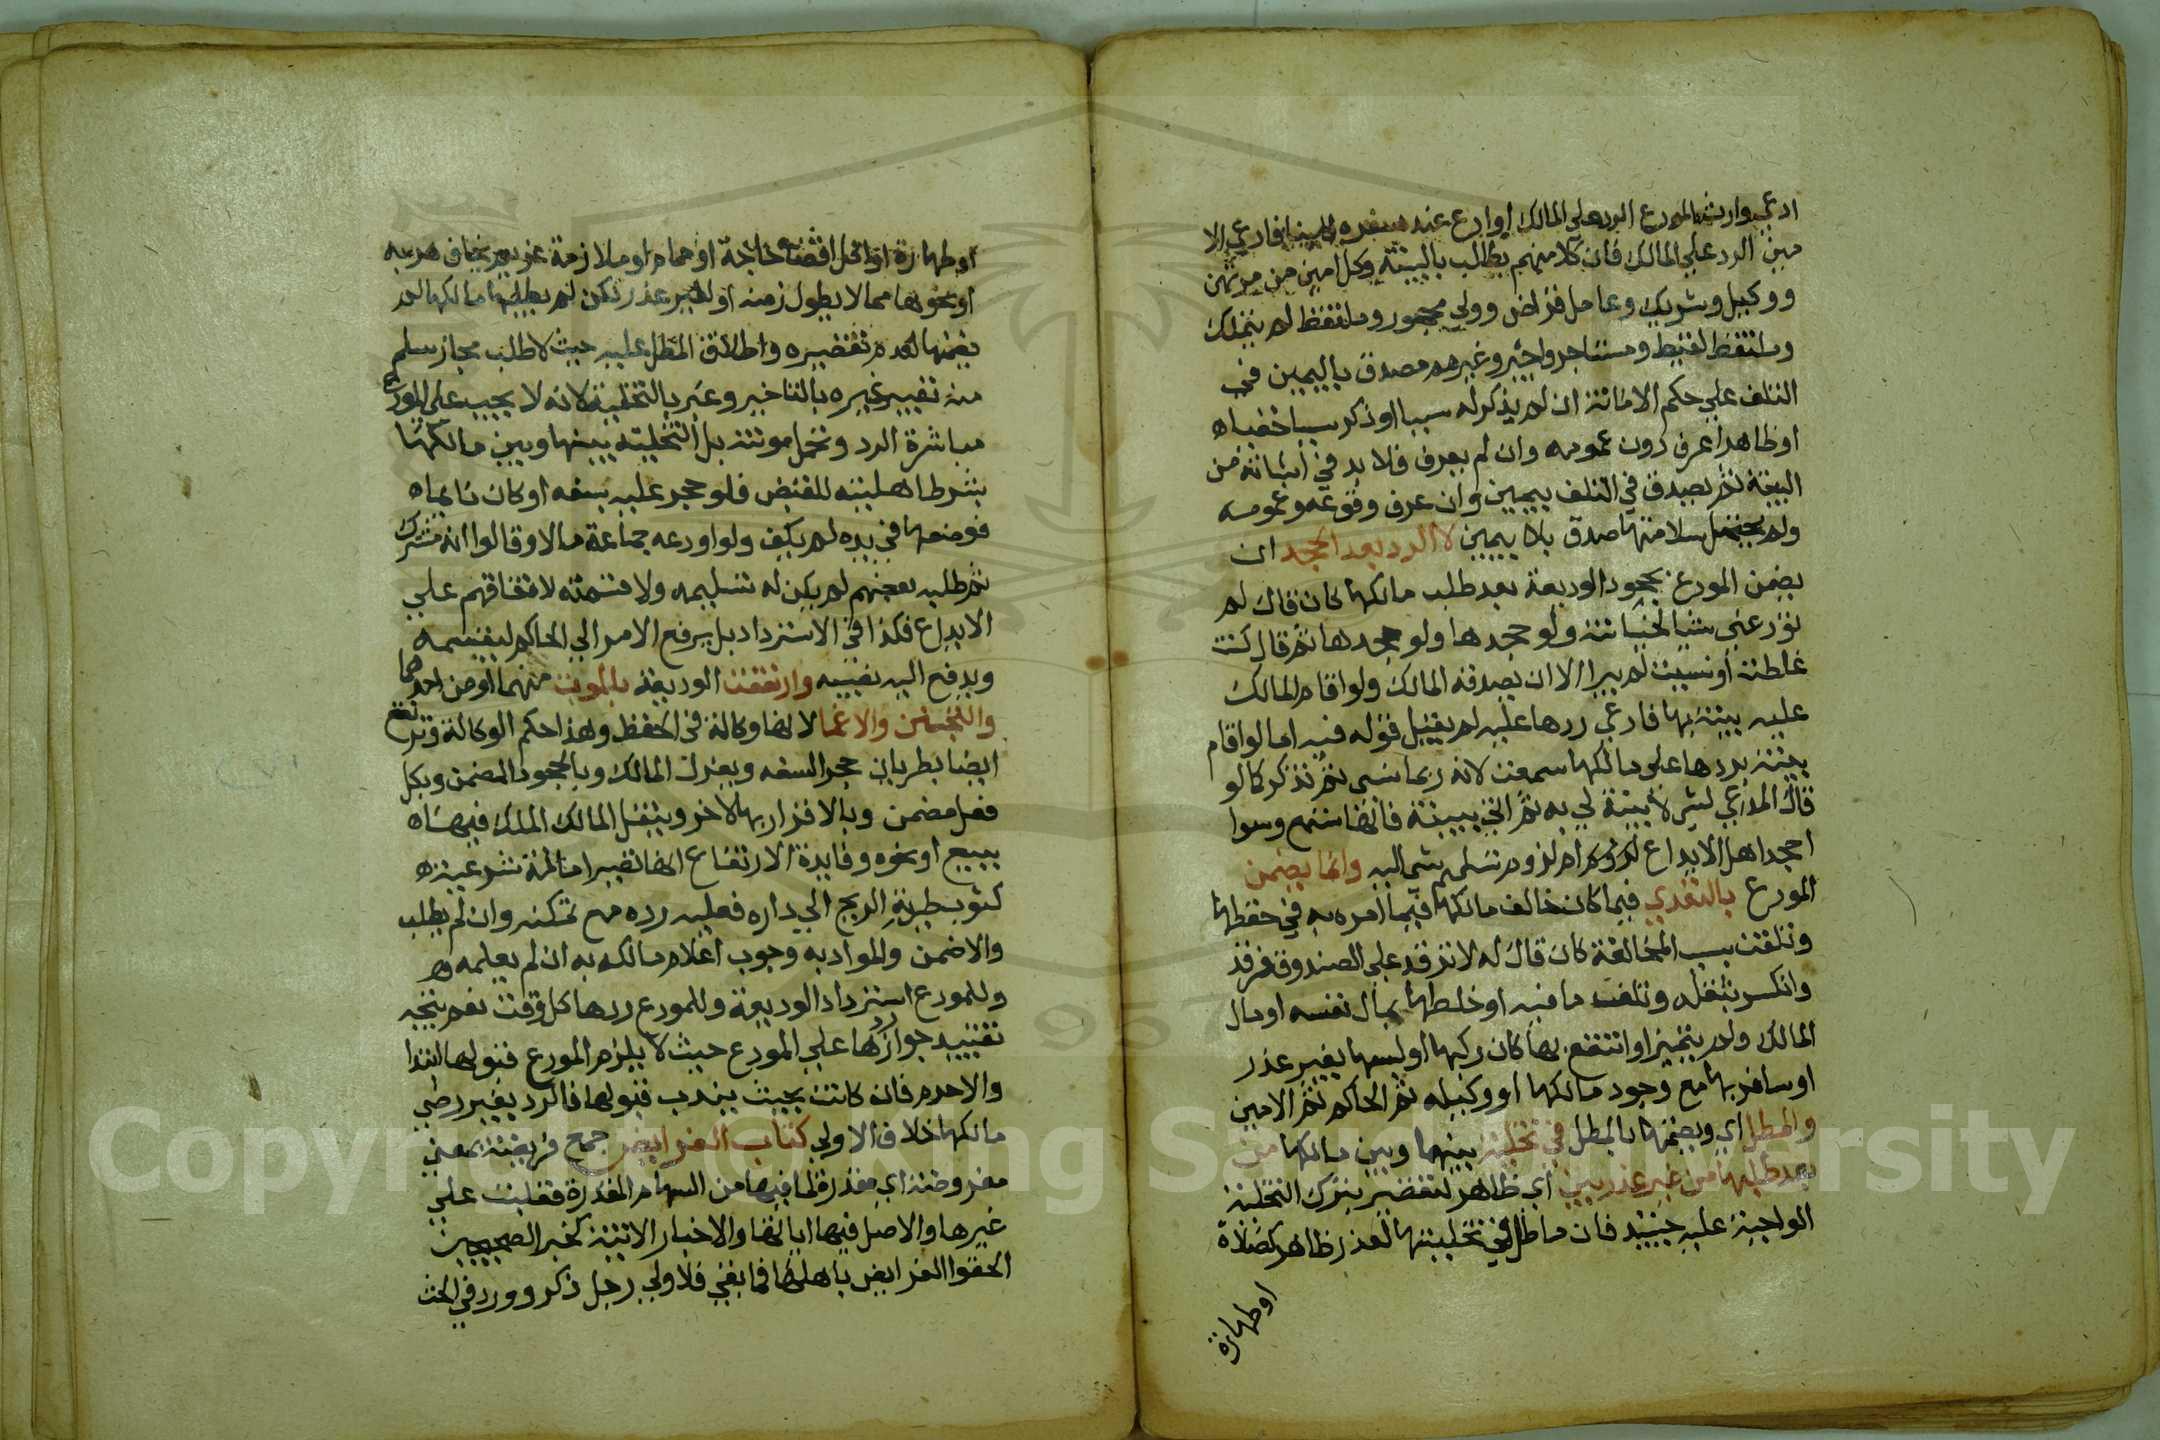 ادعي وارث المودع الرد علي المالك اوادع عند سفره امينا فادعي الا
مين الرد علي المالك فان كلا منهم يطالب بالبينة وكل امين من مرتهن
ووكيل وشريك وعامل قراض وولي محجور وملتقط لم يتملك
وملتقط لقيط ومستاجر واجير وغيرهم مصدق باليمين في
التلف علي حكم الامانة ان لم يذكر له سببا او ذكر سببا خفياه
او ظاهرا عرف دون عمومه وان لم يعرف فلا بد في اثباته من
البينة ثم يصدق في التلف بيمين وان عرف وقوعه وعمومه
ولم يحتمل سلامتها صدق بلا يمين لا الرد بعد الجحد ان
يضمن المودع بجحود الوديعة بعد طلب مالكها كان قال لم
تودعني شيا لخيانته ولو جحدها ولو جحدها ثم قال كنت
غلطت او نسيت لم يبرا الا ان يصدقه المالك ولو اقام المالك
عليه بينة بها فادعي ردها عليه لم يقبل قوله فيه اما لو اقام
بينة بردها علي مالكها سمعت لانه ربما نسي ثم تذكر كما لو
قال المدعي ليس لا بينة لي به ثم اتي ببينة فانها تسمع وسوا
اجحد اهل الايداع لم لزوم تسليم شي اليه وانما يضمن
المودع بالتعدي فيها كان خالف مالكها فيما امره به في حفظها
وتلفت بسبب المخالفة كان قال له لا ترقد علي الصندوق فرقد
وانكسر بثقله وتلفت ما فيه او خلطها بمال نفسه او مال
المالك ولم يتميز او انتفع بها كان ركبها او لبسها بغير عذر
او سافر بها مع وجود مالكها او وكيله ثم الحاكم ثم الامين
والمطل اي ويضمنها بالمطل في تخلية بينها وبين مالكها من
بعد طلبها من غير عذر بين اي ظاهر لتقصير بترك التخلية
الواجبة عليه حينئذ فان ماطل في تخليتها لعذر ظاهر كصلاة
او طهارة
او طهارة او اكل اقضاه حاجة او حمام او ملازمة غريم يخاف هربه
او نحوها مما لا يطول زمنه او لغير عذر لكن لم يطلبها مالكها لم
يضمنها لعدم تقصيره واطلاق المطل عليه حيث لا طلب مجاز سلم
منه تعبير غيره بالتاخير وعبر بالتخلية لانه لا يجب علي المودع
مباشرة الرد وتحمل مونته بل التخلية بينها وبين مالكها
بشرط اهليته للقبض فلو حجر عليه بسفه او كان نايماه
فوضعها في يده لم يكف ولو اودعه جماعة مالا وقالوا انه مشترك
ثم طلبه بعضهم لم يكن له تسليمه ولا قسمته لاتفاقهم علي
الايداع فكذا في الاسترداد بل يرفع الامر الي الحاكم ليقسمه
ويدفع اليه نصيبه وارتفعت الوديعة بالموت منهما او من احدهما
والتجنن والاغما لانها وكالة في الحفظ وهذا حكم الوكالة وترتفع
ايضا بطريان حجر السفه وبعزل المالك وبالجحود المضمن وبكل
فعل مضمن وبالاقرار بها لاخر وبنقل المالك الملك فيهاه
ببيع او نحوه وفايدة الارتفاع انها تصير امانة شرعيةه
كثوب طيرته الريح الي داره فعليه رده مع تمكنه وان لم يطلب
والا ضمن والمراد به وجوب اعلام مالكه به ان لم يعلمه هم
وللمودع استرداد الوديعة وللمودع ردها كل وقت نعم يتجه
تقييد جواز ردها علي المودع حيث لا يلزم المودع قبولها ابتدا
والا حرم فان كانت بحيث يندب قبولها فالرد بغير رضي
مالكها خلاف الاولي كتاب الفرايض جمع فريضة بمعني
مفروضة اي مقدرة لما فيها من السهام المقدرة فغلبت علي
غيرها والاصل فيها اياتها والاخبار الاتية كخبر الصحيحين
الحقوا الفرايض باهلها فما بقي فلاولي رجل ذكر وورد في الحث